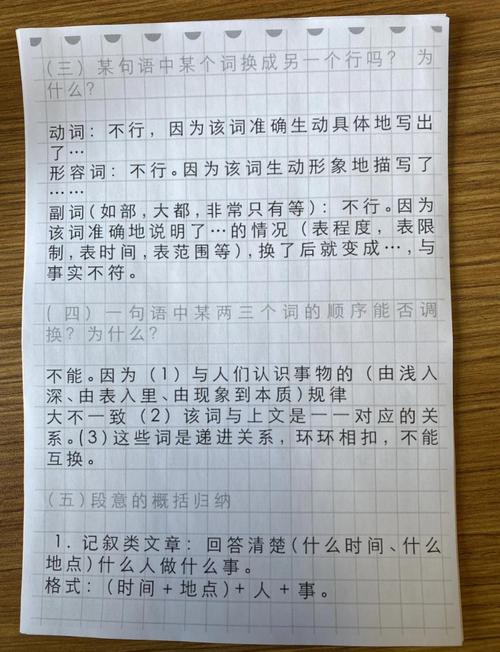 (三) 某句语中某个词换成另一个行吗? 为
什么?
动词: 不行, 因为该词准确生动具体地写出
了…
形容词: 不行。因为该词生动形象地描写了
……
副词(如部,大都,非常只有等): 不行。因为
该词准确地说明了…的情况 (表程度, 表限
制,表时间,表范围等),换了后就变成…,与
事实不符。
(四) 一句语中某两三个词的顺序能否调
换? 为什么?
不能。因为 (1) 与人们认识事物的 (由浅入
深、由表入里、由现象到本质) 规律
大不一致 (2) 该词与上文是一一对应的关
系。(3)这些词是递进关系, 环环相扣, 不能
互换。
(五) 段意的概括归纳
1. 记叙类文章: 回答清楚(什么时间、什么
地点)什么人做什么事。
格式: (时间+地点)+人+事。